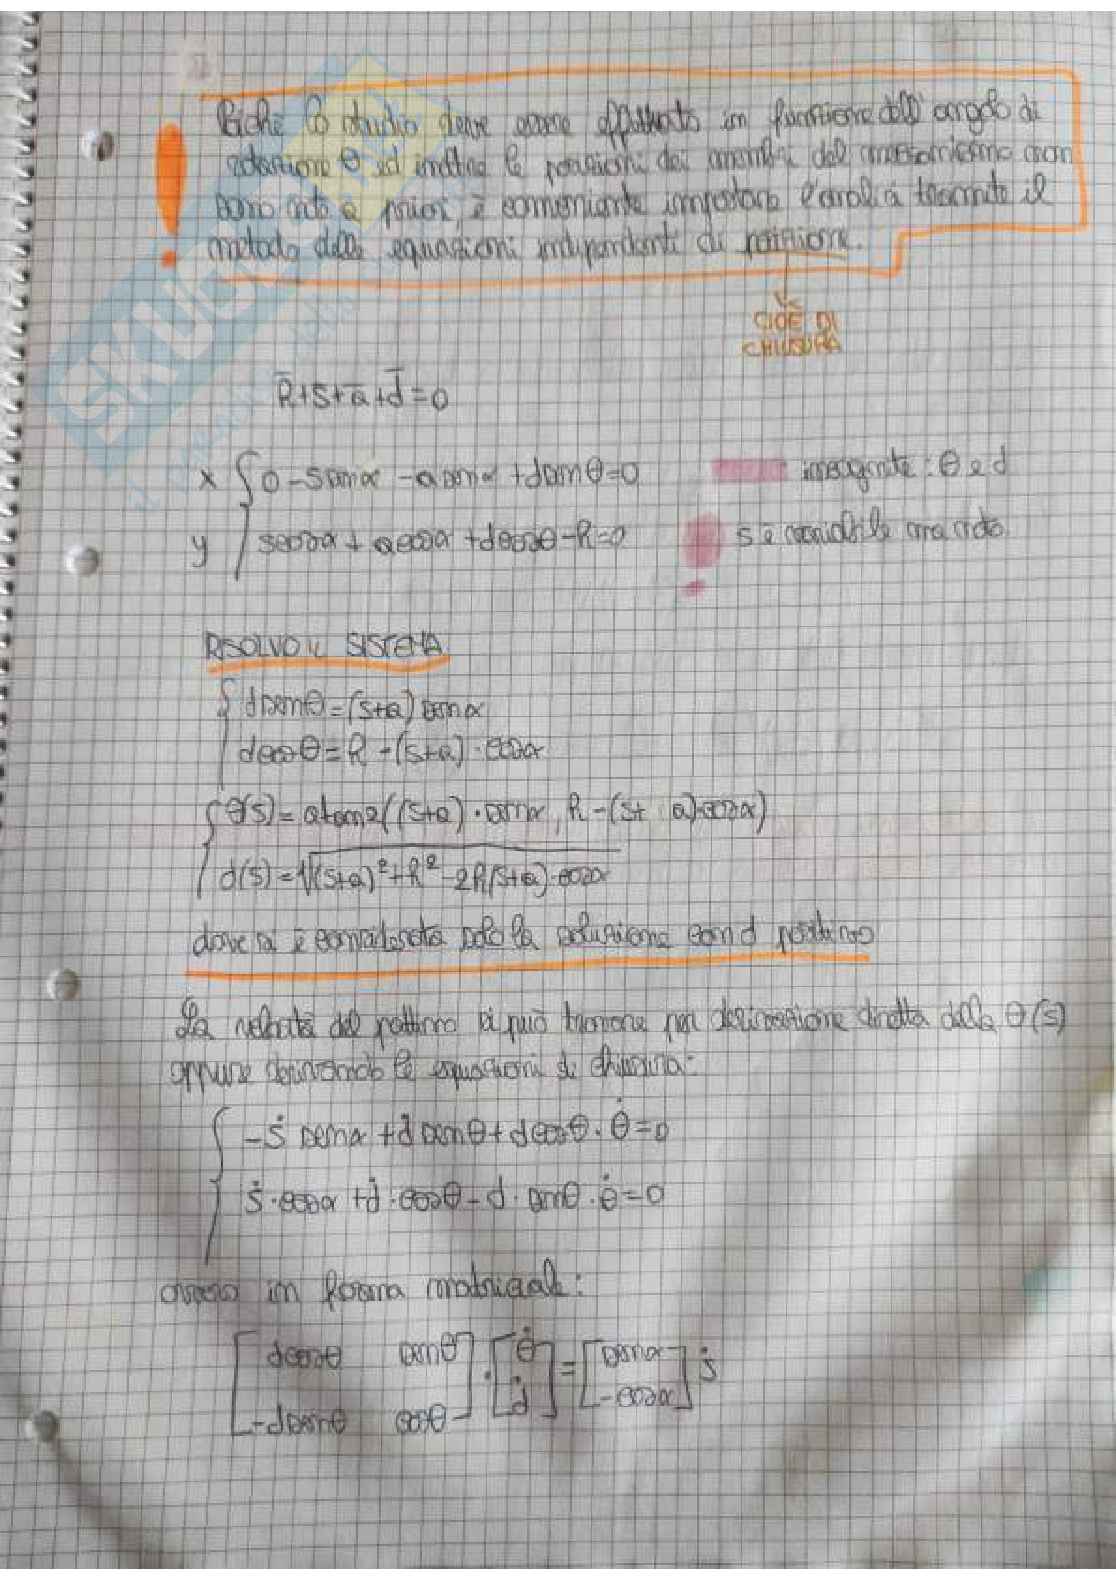 Poiché lo studio deve essere effettuato in funzione dell'angolo di
rotazione θ ed inoltre le posizioni dei membri del meccanismo non
sono note a priori, è conveniente impostare l'analisi tramite il
metodo delle equazioni indipendenti di posizione.
CIOÈ DI
CHIUSURA
R̄+s̄+ā+d̄=0
x { 0-s sinα -a sinα +d sinθ=0 incognite: θ e d
y s cosα + a cosα +d cosθ-R=0 s è variabile ma nota.
RISOLVO IL SISTEMA
{ d sinθ=(s+a) sinα
d cosθ=R-(s+a)·cosα
{ θ(s)=atan2((s+a)·sinα, R-(s+a)cosα)
d(s)=√(s+a)²+R²-2R(s+a)·cosα
dove si è considerata solo la soluzione con d positivo
La velocità del pattino si può trovare per derivazione diretta della θ(s)
oppure derivando le equazioni di chiusura:
{ -ṡ sinα +ḋ sinθ+d cosθ·θ̇=0
ṡ·cosα +ḋ·cosθ-d·sinθ·θ̇=0
ovvero in forma matriciale:
[ d cosθ sinθ ] · [ θ̇ ] = [ sinα ] ṡ
[ -d sinθ cosθ ] [ ḋ ] [ -cosα ]